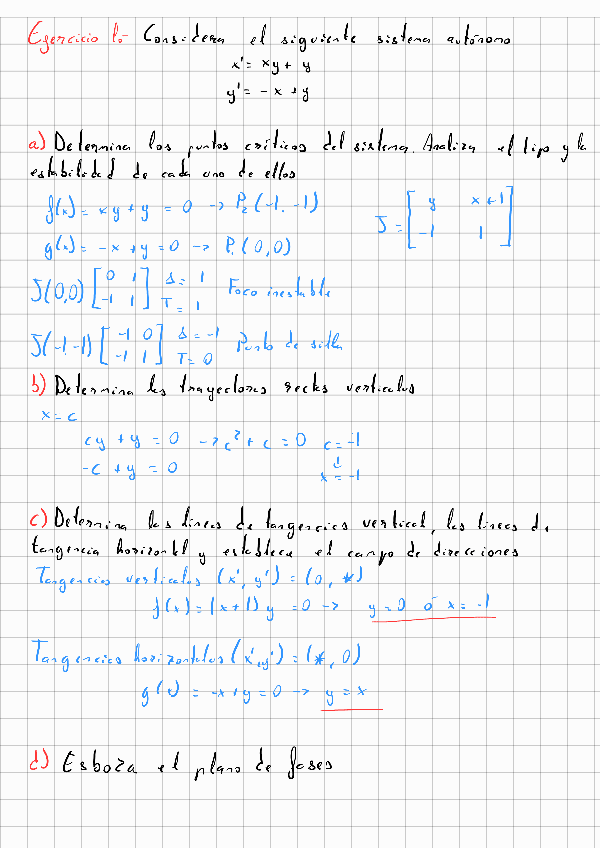 Ejercicio 1.- Considera el siguiente sistema autónomo
x' = xy + y
y' = -x + y
a) Determina los puntos críticos del sistema. Analiza el tipo y la
estabilidad de cada uno de ellos
f(x) = xy + y = 0 -> P₂(-1, -1)
g(x) = -x + y = 0 -> P₁(0,0)
J = [ y x+1 ; -1 1 ]
J(0,0) [ 0 1 ; -1 1 ] Δ = 1 T = 1 Foco inestable
J(-1,-1) [ -1 0 ; -1 1 ] Δ = -1 T = 0 Punto de silla
b) Determina las trayectorias rectas verticales
x = c
cy + y = 0 -> c² + c = 0 c = -1
-c + y = 0 ↓ x = -1
c) Determina las líneas de tangencias vertical, las líneas de
tangencia horizontal y establece el campo de direcciones
Tangencias verticales (x', y') = (0, *)
f(x) = (x+1) y = 0 -> y = 0 ó x = -1
Tangencias horizontales (x', y') = (*, 0)
g(x) = -x + y = 0 -> y = x
d) Esboza el plano de fases